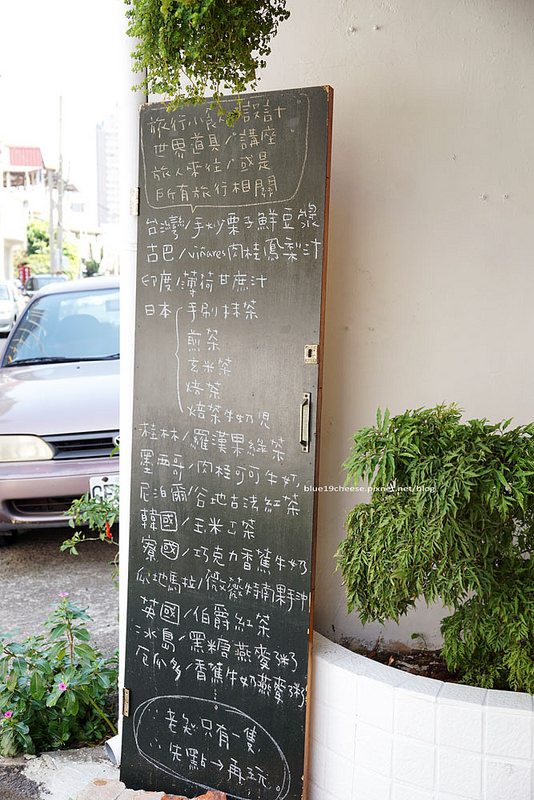 旅行小食 設計
世界道具/講座
旅人來往/或是
所有旅行相關
台灣/手炒栗子鮮豆漿
古巴/viñares肉桂鳳梨汁
印度/薄荷甘蔗汁
日本 手刷抹茶
煎茶
玄米茶
焙茶
焙茶牛奶
桂林/羅漢果綠茶
墨西哥/肉桂可可牛奶
尼泊爾/谷地古法紅茶
韓國/玉米 茶
寮國/巧克力香蕉牛奶
瓜地馬拉/微 焙南果手沖
英國/伯爵紅茶
冰島/黑糖燕麥粥
厄瓜多/香蕉牛奶燕麥粥
老 只有一隻
先點→再玩。
blue19cheese.pixnet.net/blog